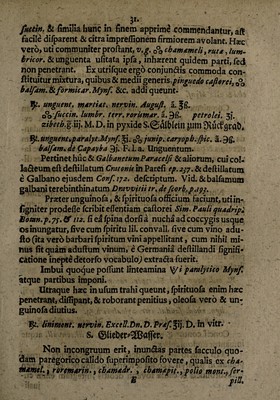 31.
succin. & similia hunc in finem apprimè commendantur, ast
facilè disparent & citra impressionem firmiorem avolant. Hæc
verò, uti communiter prostant, v. g. chamameli, ruta, lum-
bricor. & unguenta usitata ipsa, inhærent quidem parti, sed
non penetrant. Ex utrisque ergò conjunctis commoda con-
stituitur mixtura, quibus & medii generis. pinguedo castorei,
balsam. & formicar. Mynf. &c. addi queunt.
℞. unguent. martiat. nervin. August. â ℥ß.
succin. lumbr. terr. rorismar. â ʒß. petrolei. ʒj.
zibeth. g iij. M. D. in pyxide S. Sälblein zum Rückgrad.
℞. unguent. paralyt. Mynf. ℥j. junip. caryoph. spic. â ʒß.
balsam. de Capayba ʒj. F. l. a. Unguentum.
Pertinet hùc & Galbanetum Paracelsi & aliorum, cui col-
lacteum est destillatum Crusonii in Paresi ep. 297. & destillatum
è Galbano ejusdem Conf. 172. descriptum. Vid. & balsamum
galbani terebinthinatum Dnovviti tr. de scorb. p. 193.
Præter unguinosa, & spirituosa officium faciunt, uti in-
signiter prodesse scribit essentiam castorei Sim. Pauli quadrip.
Botan. p. 77. & 112. si ea spina dorsi à nucha ad coccygis usque
os inungatur, sive cum spiritu lil. convall. sive cum vino adu-
sto (ita verò barbari spiritum vini appellitant, cum nihil mi-
nus sit quàm adustum vinum, è Germania destillandi signifi-
catione ineptè detorto vocabulo) extracta fuerit.
Imbui quoque possunt linteamina paralytico Mynf.
atque partibus imponi.
Utraque hæc in usum trahi queunt, spirituosa enim hæc
penetrant, dissipant, & roborant penitius, oleosa verò & un-
guinosa diutius.
℞. liniment. nervin. Excell. Dn. D. Præf. ℥ij. D. in vitr.
S. Glieder-Wasser.
Non incongruum erit, inunctas partes sacculo quo-
dam paregorico calidò superimposito fovere, qualis ex cha-
mamel., roremarin., chamadr., chamapit., polio mont., ser-
E pill.